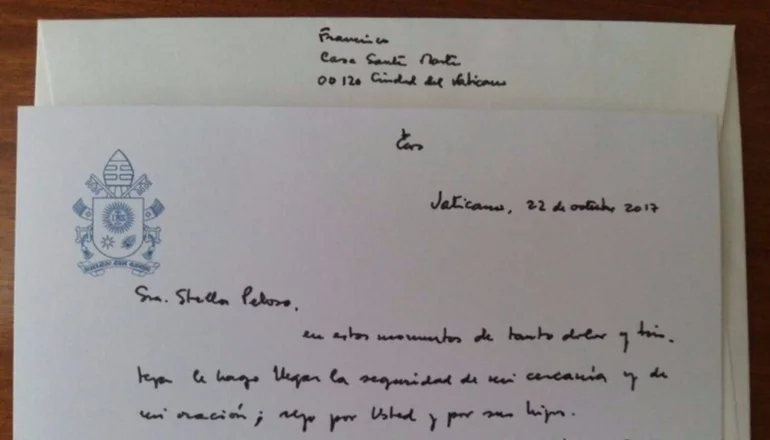 Francisco
Casa Santa Marta
00120 Ciudad del Vaticano
Vaticano, 22 de octubre 2017
Sra. Stella Peloso,
en estos momentos de tanto dolor y tris.
teza le hago llegar la seguridad de mi cercanía y de
mi oración; rezo por Usted y por sus hijos.